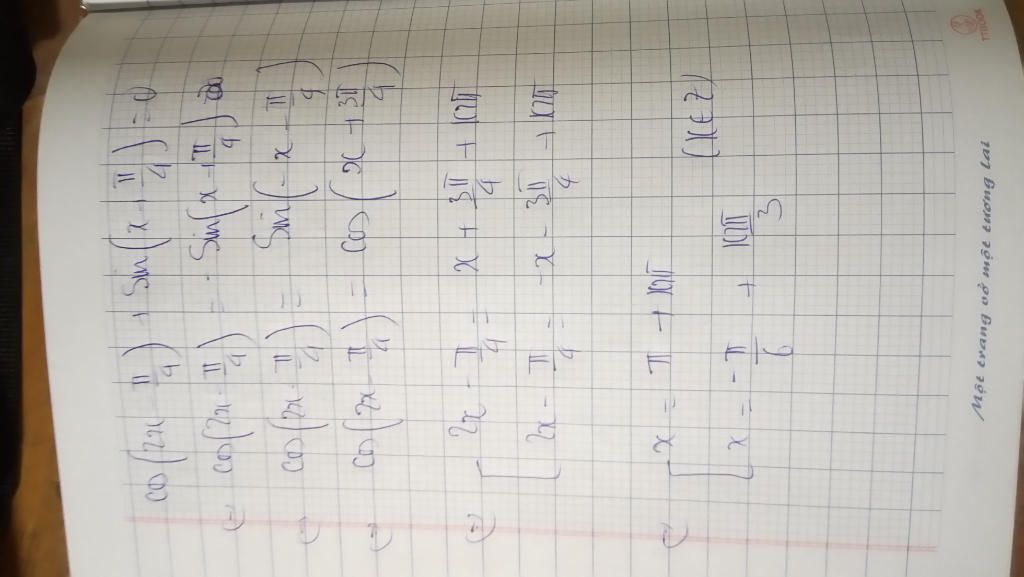 cos(2x - π/4) + sin(x + π/4) = 0
(=) cos(2x - π/4) = - sin(x + π/4)
(=) cos(2x - π/4) = sin(-x - π/4)
(=) cos(2x - π/4) = cos(x + 3π/4)
(=) [ 2x - π/4 = x + 3π/4 + k2π
2x - π/4 = -x - 3π/4 + k2π
(=) [ x = π + k2π
x = - π/6 + k2π/3 (k ∈ Z)
Một trang vở một tương lai